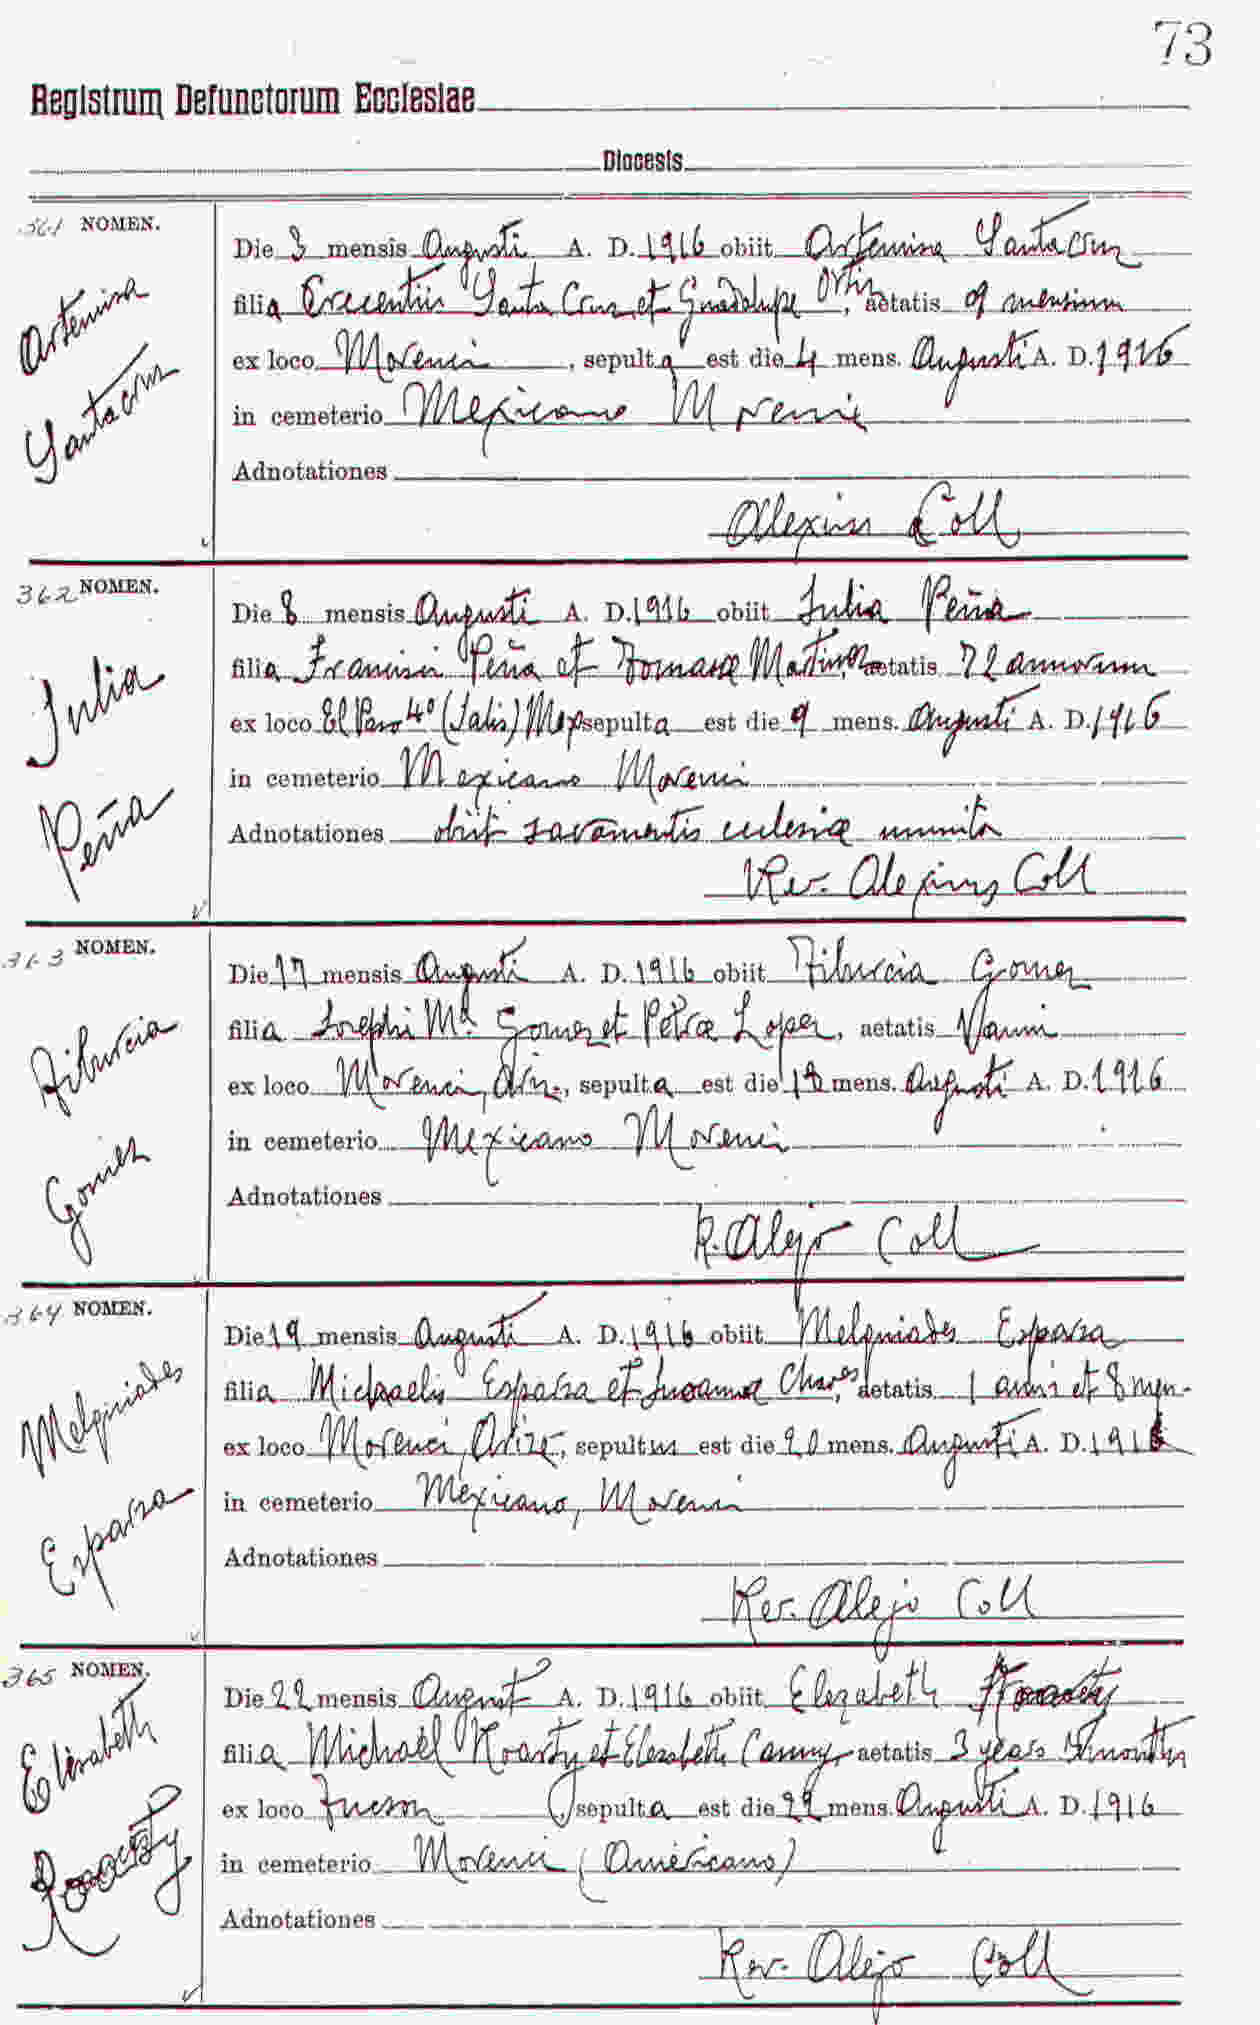 73
Registrum Defunctorum Ecclesiae
Diocesis
361 NOMEN.
Artemisa
Santacruz
Die 3 mensis Augusti A. D. 1916 obiit Artemisa Santacruz
filia Crecentii Santa Cruz et Guadalupe Ortiz, aetatis 9 mensium
ex loco Morenci, sepulta est die 4 mens. Augusti A. D. 1916
in cemeterio Mexicano Morenci
Adnotationes
Alexius Coll
362 NOMEN.
Julia
Peña
Die 8 mensis Augusti A. D. 1916 obiit Julia Peña
filia Francisci Peña et Tomasæ Martinez, aetatis 72 annorum
ex loco El Paso (Jalis) Mex sepulta est die 9 mens. Augusti A. D. 1916
in cemeterio Mexicano Morenci
Adnotationes obiit sacramentis eclesiæ munita
Rev. Alexius Coll
363 NOMEN.
Tiburcia
Gomez
Die 17 mensis Augusti A. D. 1916 obiit Tiburcia Gomez
filia Josephi Mª Gomez et Petræ Lopez, aetatis anni
ex loco Morenci, Ariz., sepulta est die 18 mens. Augusti A. D. 1916
in cemeterio Mexicano Morenci
Adnotationes
R. Alejo Coll
364 NOMEN.
Melquiades
Esparza
Die 19 mensis Augusti A. D. 1916 obiit Melquiades Esparza
filia Michaelis Esparza et Juoannæ Chaves, aetatis 1 anni et 8 men-
ex loco Morenci, Ariz., sepultus est die 20 mens. Augusti A. D. 1916
in cemeterio Mexicano, Morenci
Adnotationes
Rev. Alejo Coll
365 NOMEN.
Elisabeth
Roarty
Die 22 mensis August A. D. 1916 obiit Elezabeth
filia Michaël Roarty et Elesabeth Canny, aetatis 3 years months
ex loco Tucson, sepulta est die 22 mens. Augusti A. D. 1916
in cemeterio Morenci (Américano)
Adnotationes
Rev. Alejo Coll